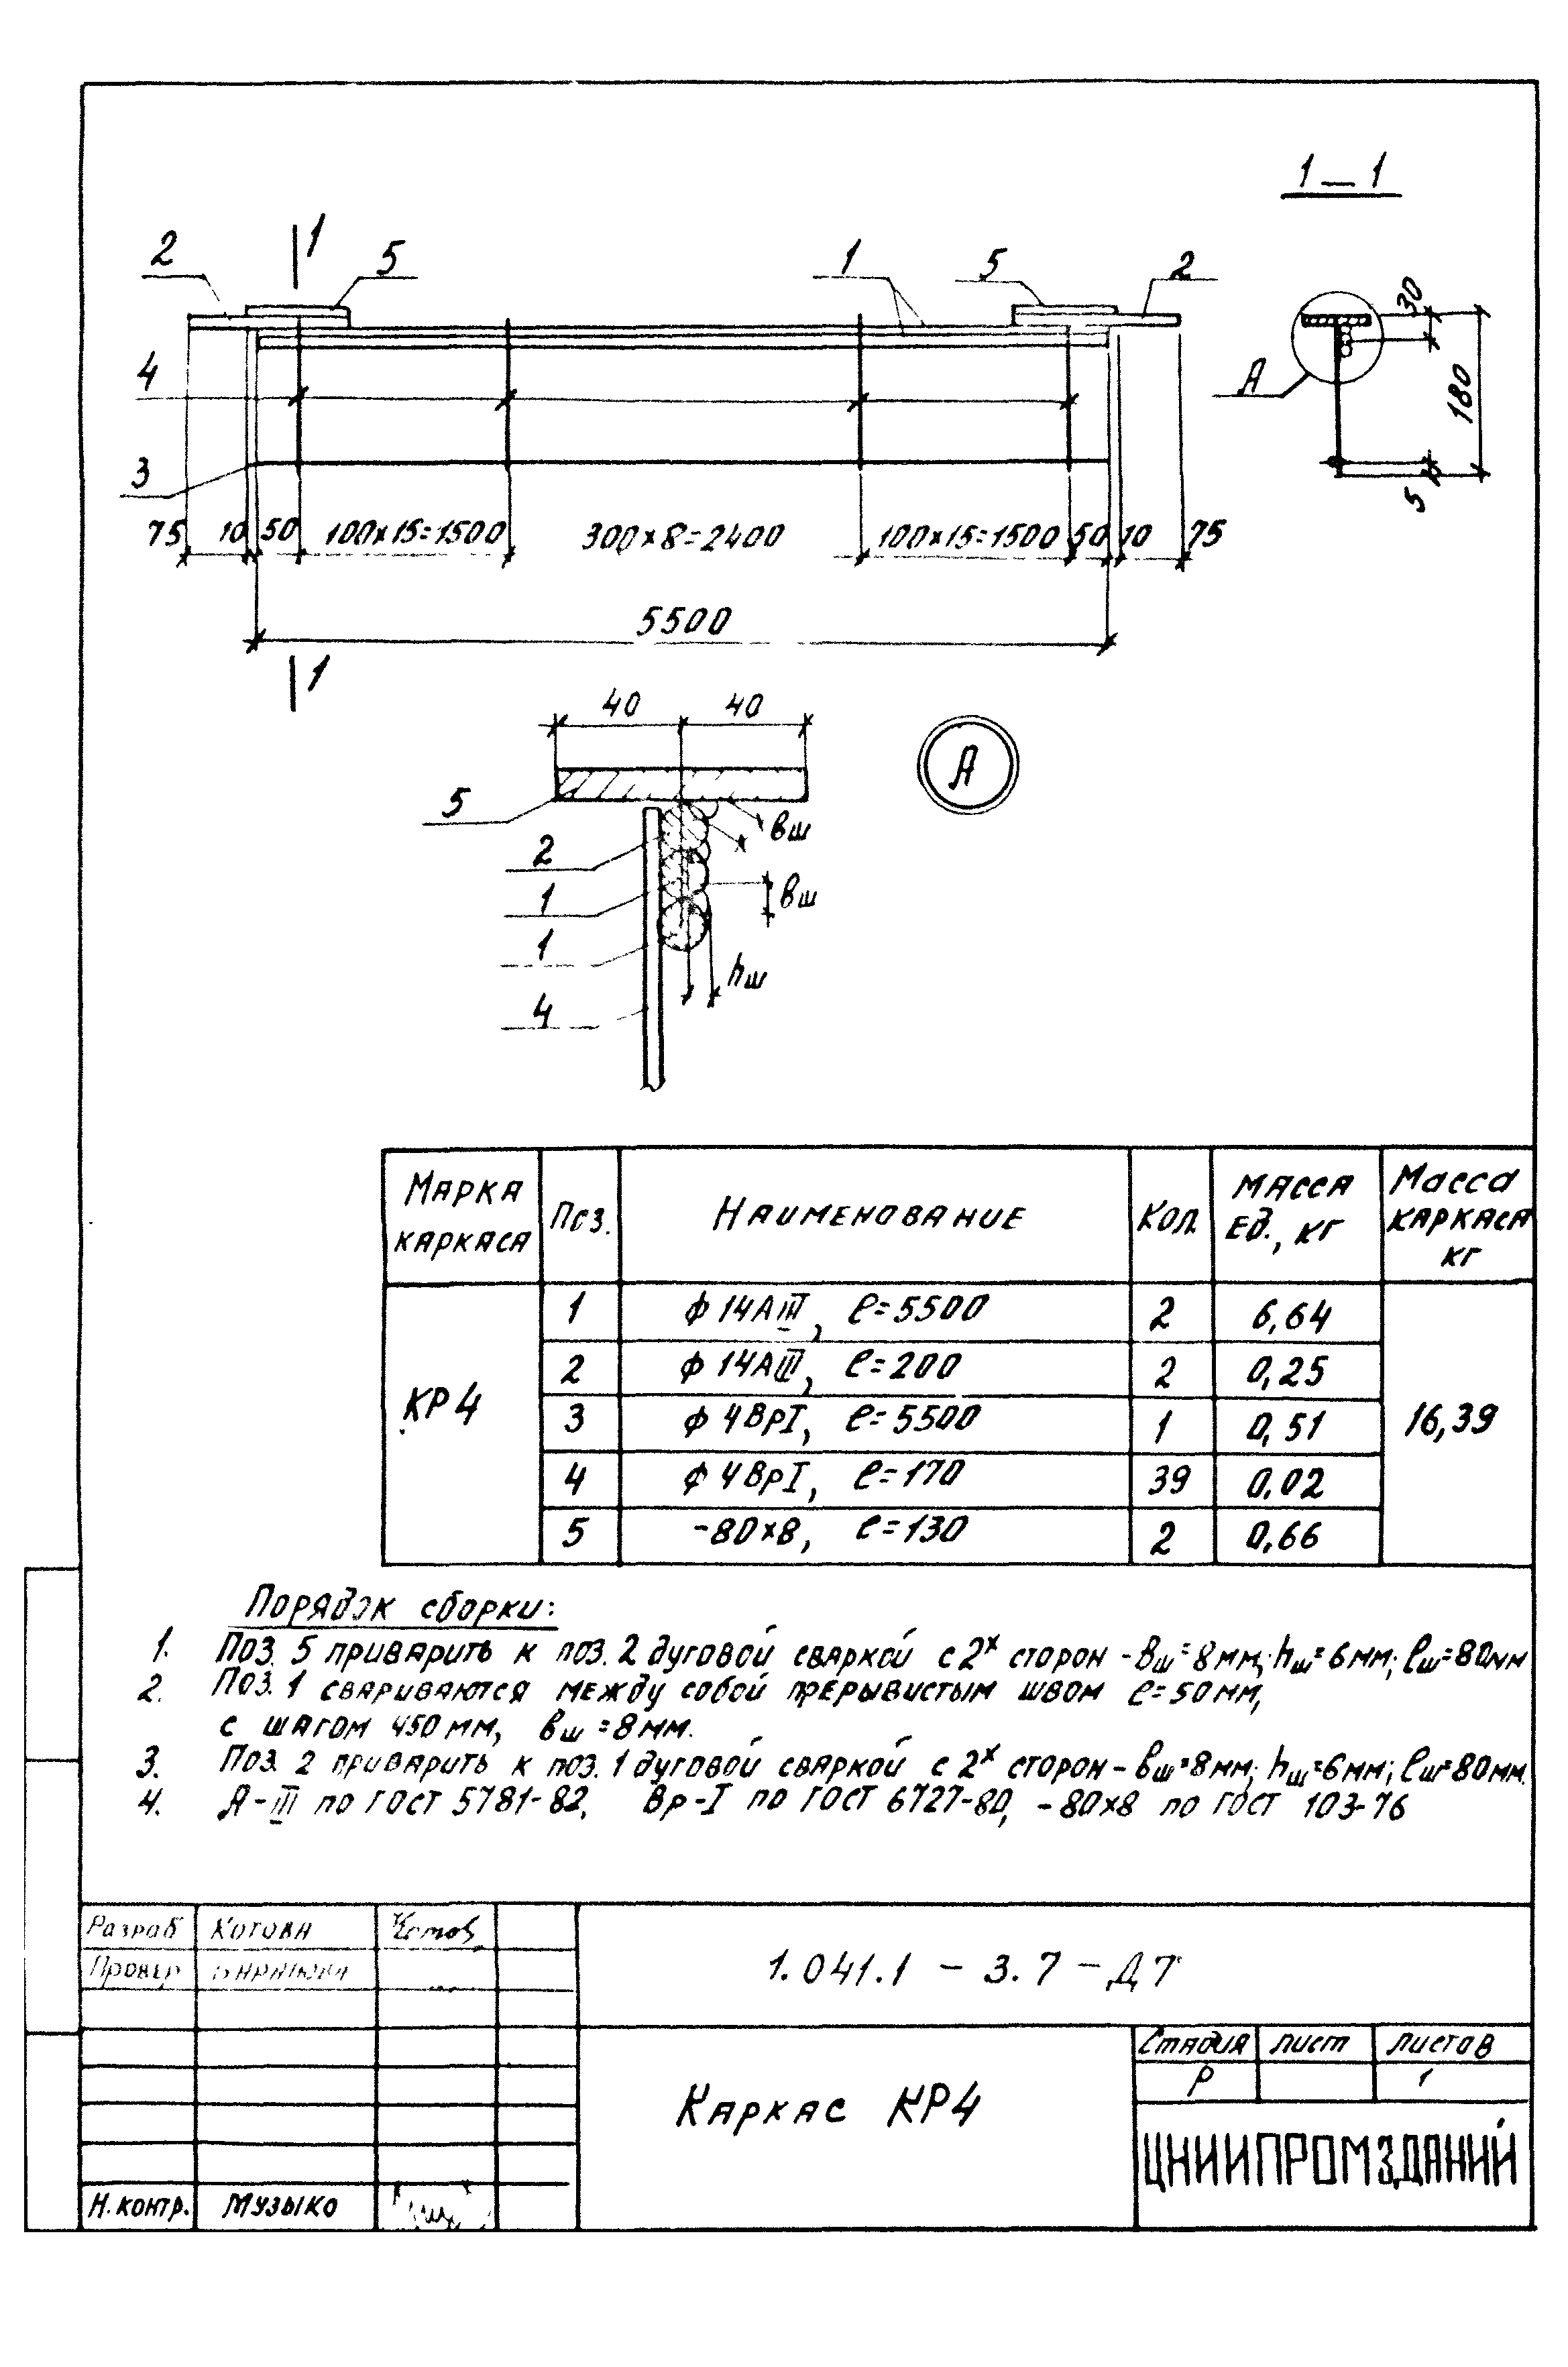 1–1
2
1
5
1
5
2
30
4
А
180
3
5
75 10 50 100×15=1500 300×8=2400 100×15=1500 50 10 75
5500
1
40 40
А
5
вш
2
1
вш
1
hш
4
Марка каркаса Поз. Наименование Кол. Масса ед., кг Масса каркаса кг
КР4 16,39
1 ф14АIII, ℓ=5500 2 6,64
2 ф14АIII, ℓ=200 2 0,25
3 ф4ВрI, ℓ=5500 1 0,51
4 ф4ВрI, ℓ=170 39 0,02
5 -80×8, ℓ=130 2 0,66
Порядок сборки:
1. Поз. 5 приварить к поз. 2 дуговой сваркой с 2х сторон - вш=8мм; hш=6мм; ℓш=80мм
2. Поз. 1 свариваются между собой прерывистым швом ℓ=50мм,
с шагом 450мм, вш=8мм.
3. Поз. 2 приварить к поз. 1 дуговой сваркой с 2х сторон - вш=8мм; hш=6мм; ℓш=80мм.
4. А-III по ГОСТ 5781-82, Вр-I по ГОСТ 6727-80, -80×8 по ГОСТ 103-76
Разраб Котова
Провер
1.041.1 – 3.7 – Д7
Стадия лист листов
Р 1
Каркас КР4
ЦНИИПРОМЗДАНИЙ
Н.контр. Музыко